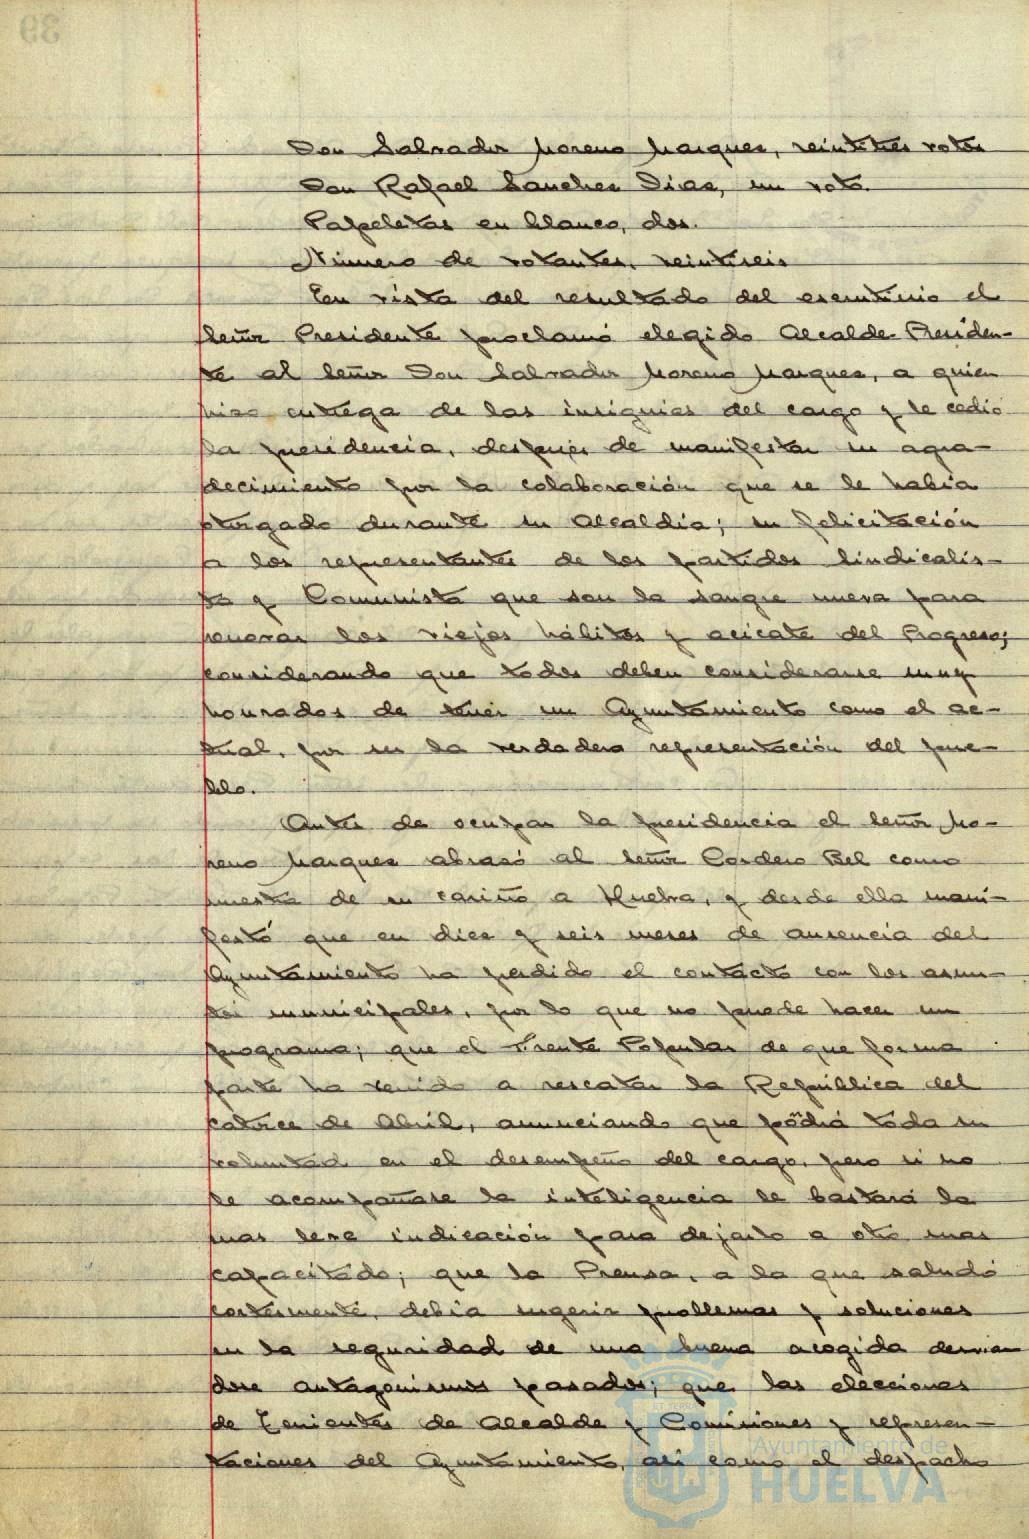 Don Salvador Moreno Marquez, veintitres votos
Don Rafael Sanchez Diaz, un voto.
Papeletas en blanco, dos.
Número de votantes, veintiseis
En vista del resultado del escrutinio el
Señor Presidente proclamó elegido Alcalde-Presiden-
te al Señor Don Salvador Moreno Marquez, a quien
hizo entrega de las insignias del cargo y le cedió
la presidencia, después de manifestar su agra-
decimiento por la colaboración que se le había
otorgado durante su Alcaldía; su felicitación
a los representantes de los partidos Sindicalis-
ta y Comunista que son la sangre nueva para
renovar los viejos hábitos y acicate del Progreso;
considerando que todos deben considerarse muy
honrados de tener un Ayuntamiento como el ac-
tual, por ser la verdadera representación del pue-
blo.
Antes de ocupar la presidencia el Señor Mo-
reno Marquez abrazó al Señor Cordero Bel como
muestra de su cariño a Huelva, y desde ella mani-
festó que en diez y seis meses de ausencia del
Ayuntamiento ha perdido el contacto con los asun-
tos municipales, por lo que no puede hacer un
programa; que el Frente Popular de que forma
parte ha venido a rescatar la República del
catorce de Abril, anunciando que pondrá toda su
voluntad en el desempeño del cargo, pero si no
le acompañase la inteligencia le bastará la
mas leve indicación para dejarlo a otro mas
capacitado; que la Prensa, a la que saludó
cortesmente, debía sugerir problemas y soluciones
en la seguridad de una buena acogida
dose antagonismos pasados; que las elecciones
de Tenientes de Alcalde y Comisiones y represen-
taciones del Ayuntamiento, asi como el despacho
Ayuntamiento de
HUELVA
39